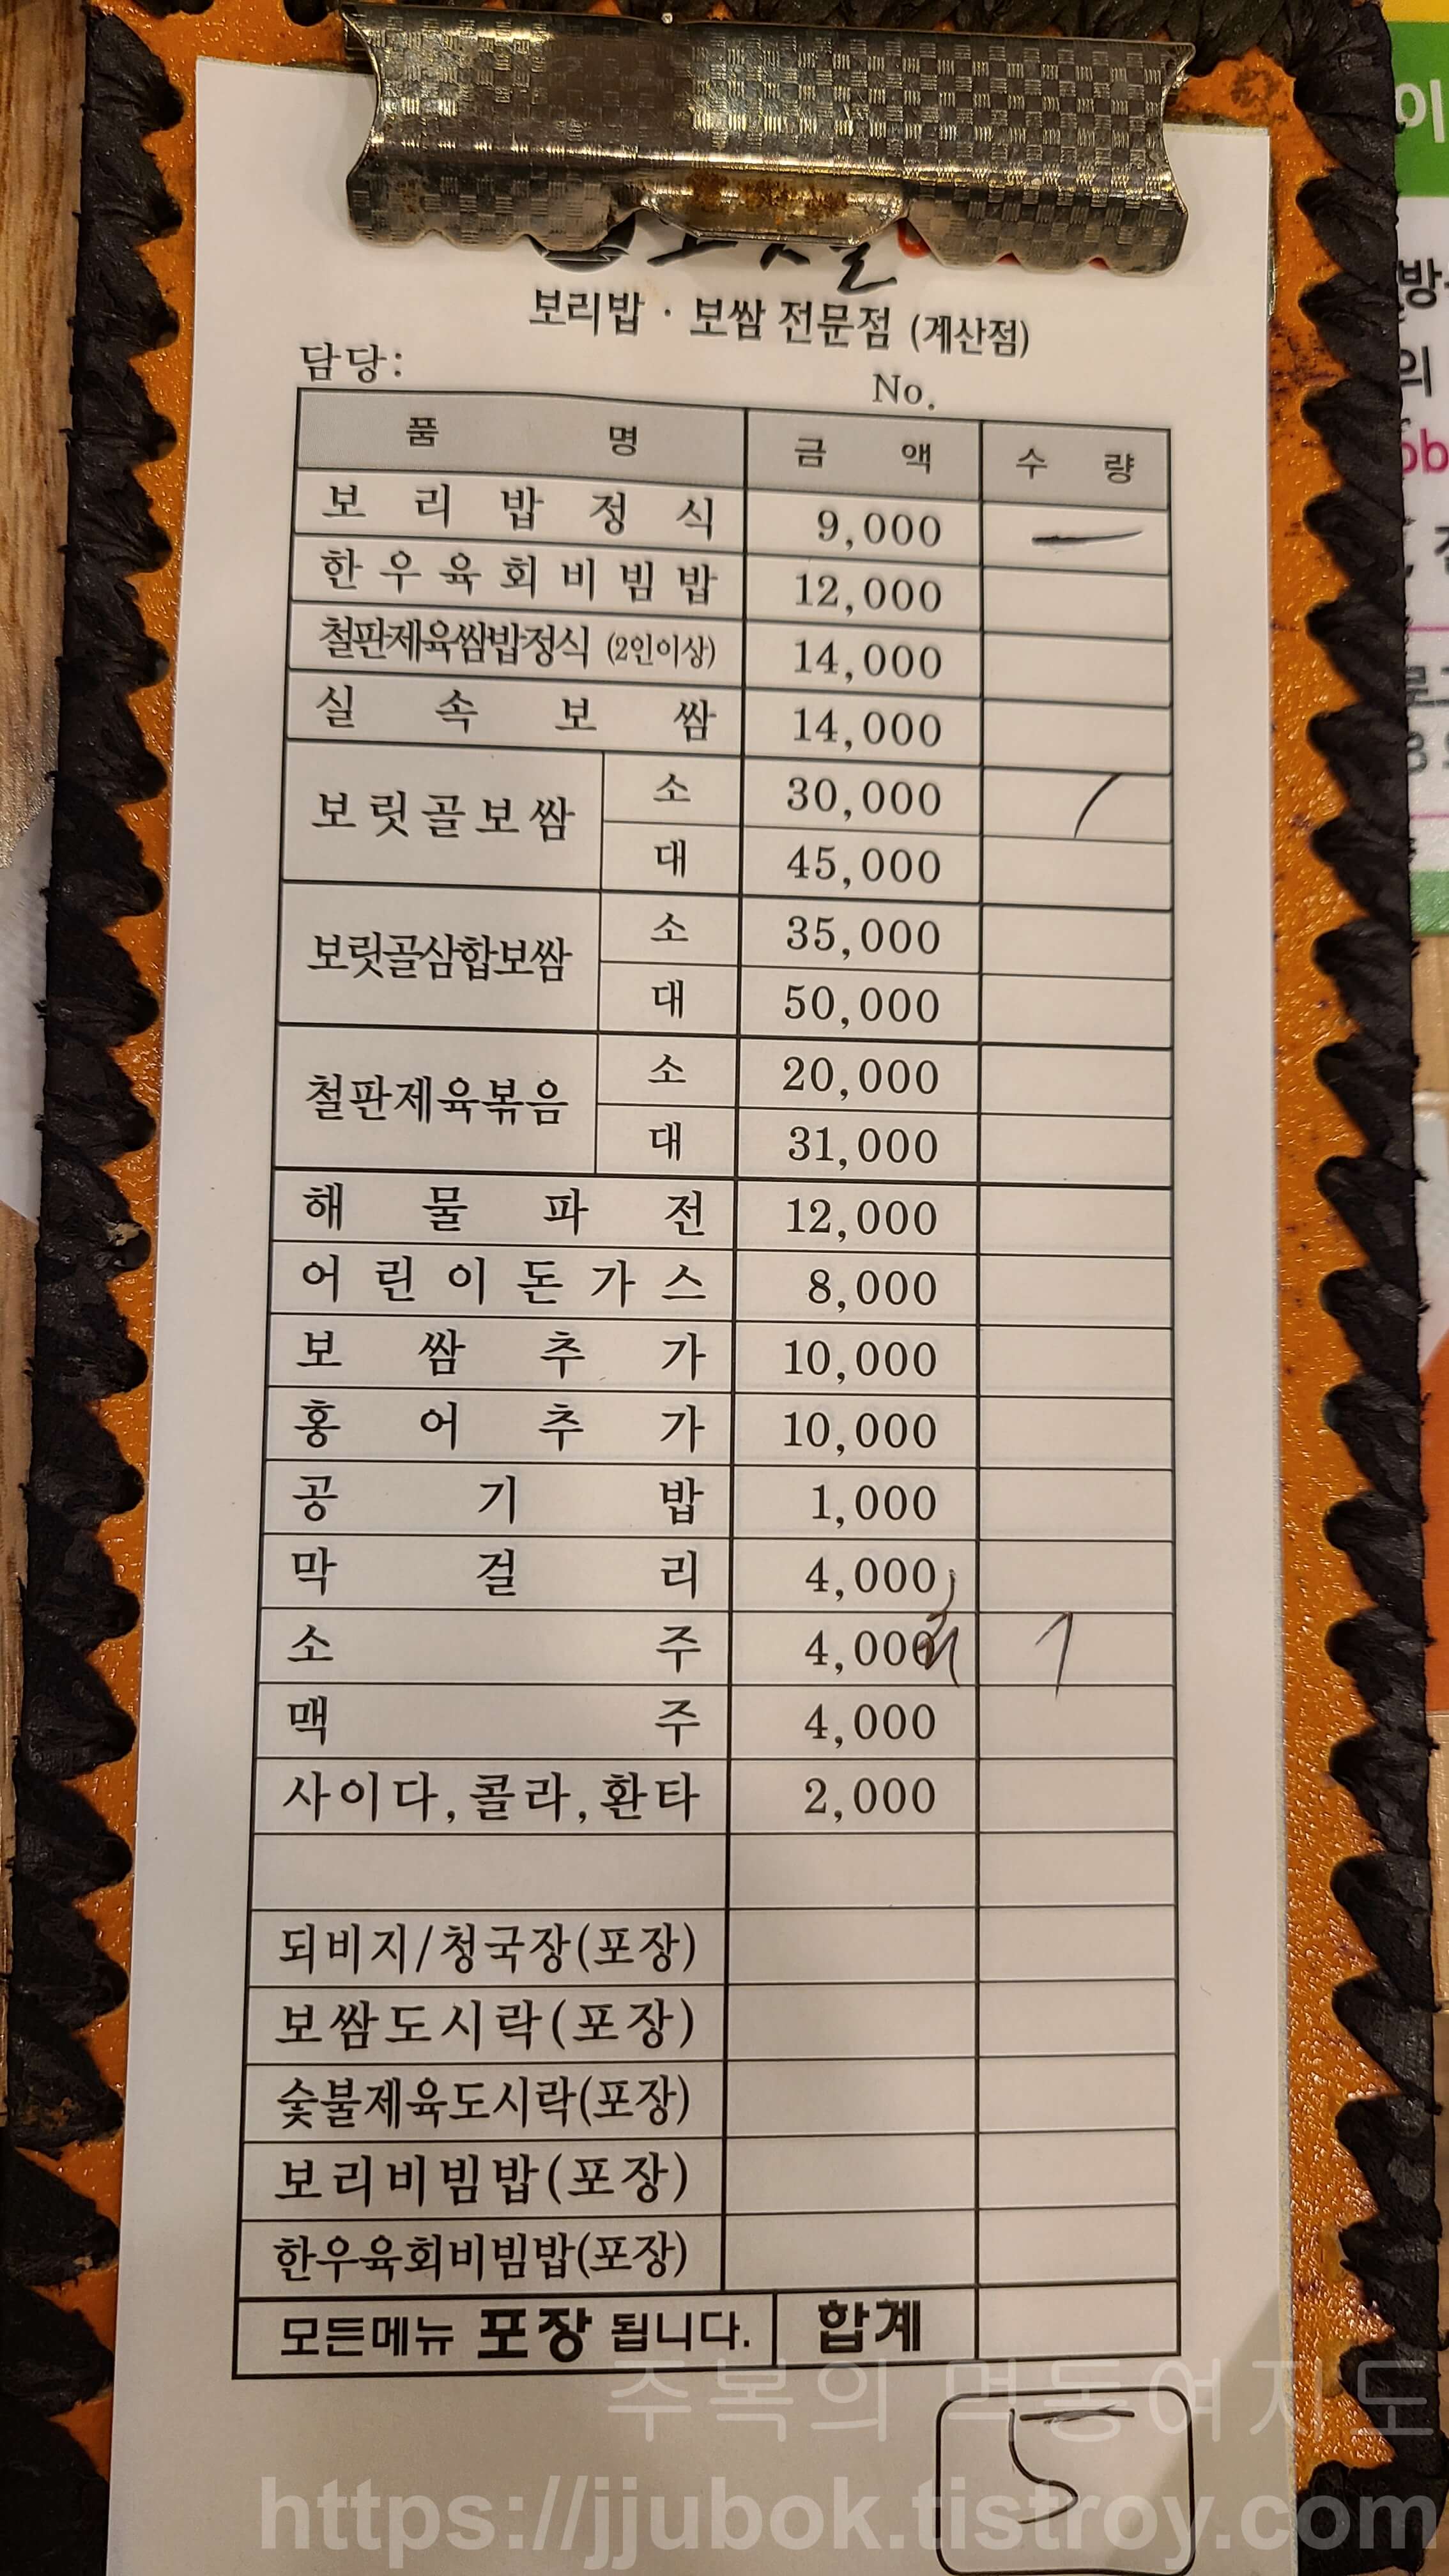 보리밥 · 보쌈 전문점 (계산점)
담당:
No.
품 명 금 액 수 량
보 리 밥 정 식 9,000 一
한 우 육 회 비 빔 밥 12,000
철판제육쌈밥정식 (2인이상) 14,000
실 속 보 쌈 14,000
보릿골보쌈 소 30,000 /
대 45,000
보릿골삼합보쌈 소 35,000
대 50,000
철판제육볶음 소 20,000
대 31,000
해 물 파 전 12,000
어 린 이 돈 가 스 8,000
보 쌈 추 가 10,000
홍 어 추 가 10,000
공 기 밥 1,000
막 걸 리 4,000
소 주 4,000 1
맥 주 4,000
사이다, 콜라, 환타 2,000
되비지/청국장(포장)
보쌈도시락(포장)
숯불제육도시락(포장)
보리비빔밥(포장)
한우육회비빔밥(포장)
모든메뉴 포장 됩니다. 합계
주복의 먹동여지도
5
https://jjubok.tistroy.com